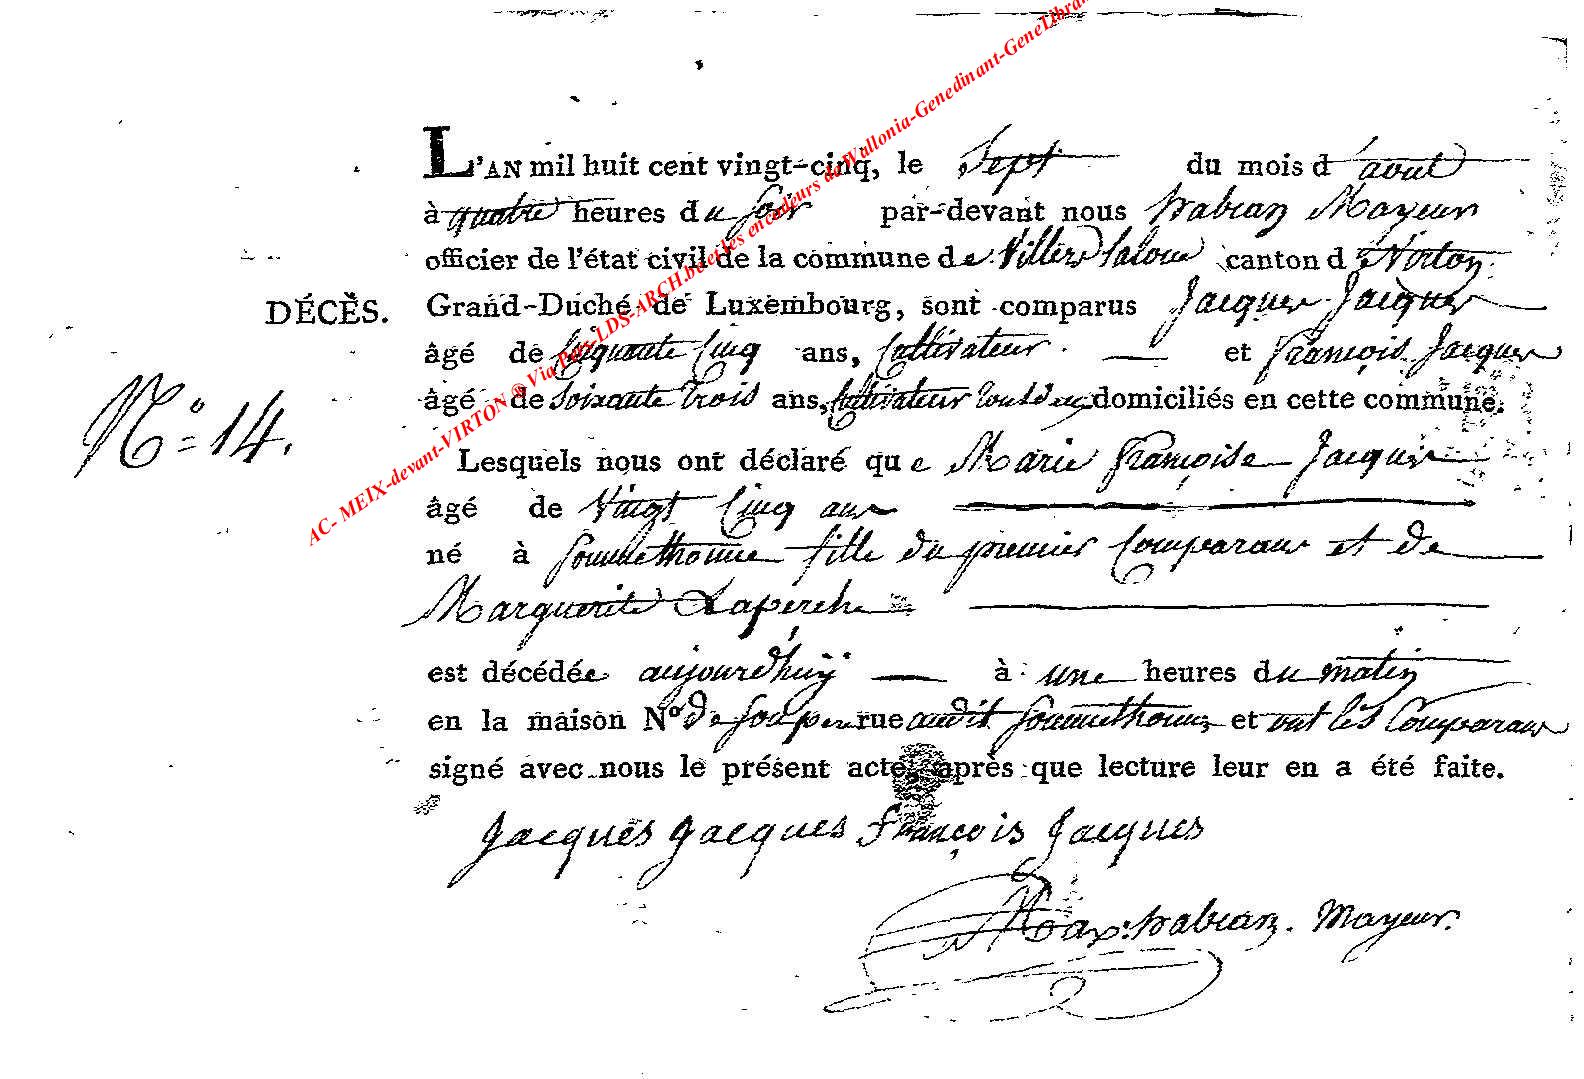 L'AN mil huit cent vingt-cinq, le Sept du mois d'aout
à quatre heures du soir par-devant nous habran Mayeur
officier de l'état civil de la commune de Villers laloue canton de Virton
DÉCÈS. Grand-Duché de Luxembourg, sont comparus Jacques Jacques
âgé de Cinquante Cinq ans, Cultivateur et françois Jacques
âgé de Soixante trois ans, Cultivateur tout deux domiciliés en cette commune.
N° 14.
Lesquels nous ont déclaré que Marie françoise Jacques
âgé de Vingt Cinq ans
né à Sommethonne fille du premier Comparans et de
Marguerite Laperche
est décédée aujourd'huÿ à une heures du matin
en la maison N° de son pere rue audit Sommethonne et ont les Comparans
signé avec nous le présent acte, après que lecture leur en a été faite.
Jacques Jacques François Jacques
Max: habran. Mayeur.
AC- MEIX-devant-VIRTON @ Via Pay-LDS-ARCH.be et les encodeurs de Wallonia-Genedinant-GeneLibra